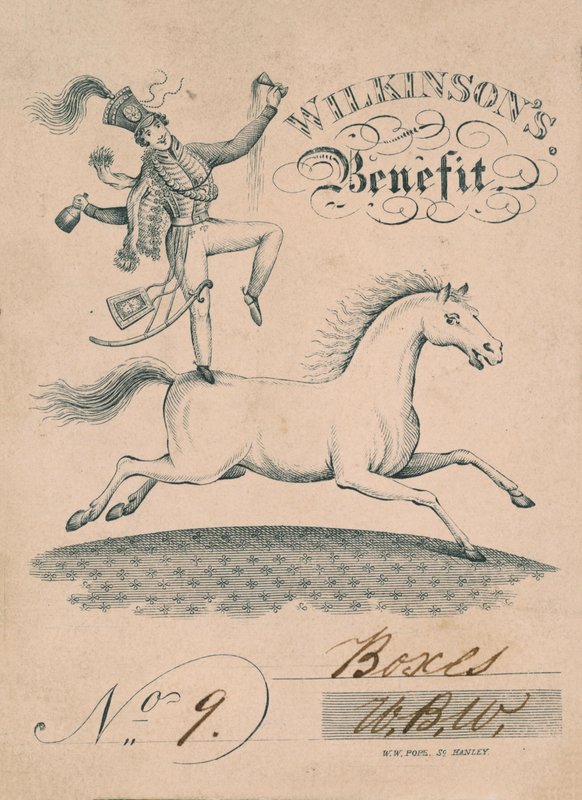 WILKINSON'S
Benefit.
Boxes
No 9.
W.B.W.
W.W. POPE. SC HANLEY.